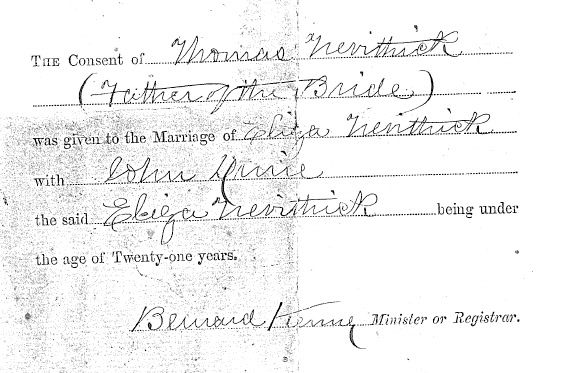 THE Consent of Thomas Nevithick
(Father of the Bride)
was given to the Marriage of Eliza Nevithick
with John
the said Eliza Nevithick being under
the age of Twenty-one years.
Bernard Minister or Registrar.